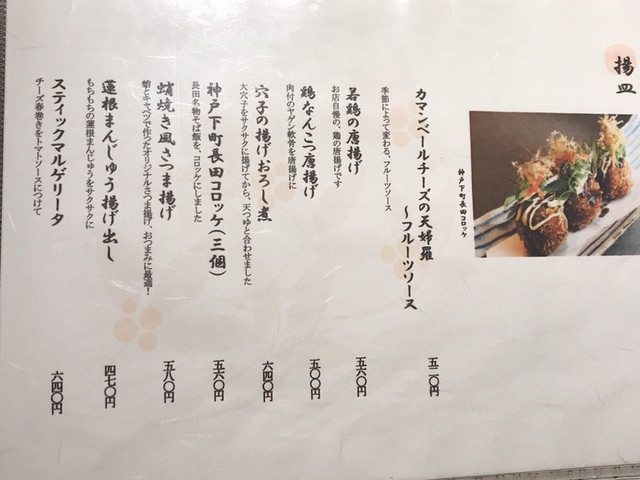 揚皿
神戸下町長田コロッケ
カマンベールチーズの天婦羅
～フルーツソース
季節によって変わる、フルーツソース
五二〇円
若鶏の唐揚げ
お店自慢の、鶏の唐揚げです
五六〇円
鶏なんこつ唐揚げ
肉付のヤゲン軟骨を唐揚げに
五〇〇円
穴子の揚げおろし煮
大穴子をサクサクに揚げてから、天つゆと合わせました
六四〇円
神戸下町長田コロッケ(三個)
長田名物そば飯を、コロッケにしました
五六〇円
蛸焼き風さつま揚げ
蛸とキャベツで作ったオリジナルさつま揚げ、おつまみに最適!
五八〇円
蓮根まんじゅう揚げ出し
もちもちの蓮根まんじゅうをサクサクに
四七〇円
スティックマルゲリータ
チーズ春巻きをトマトソースにつけて
六四〇円